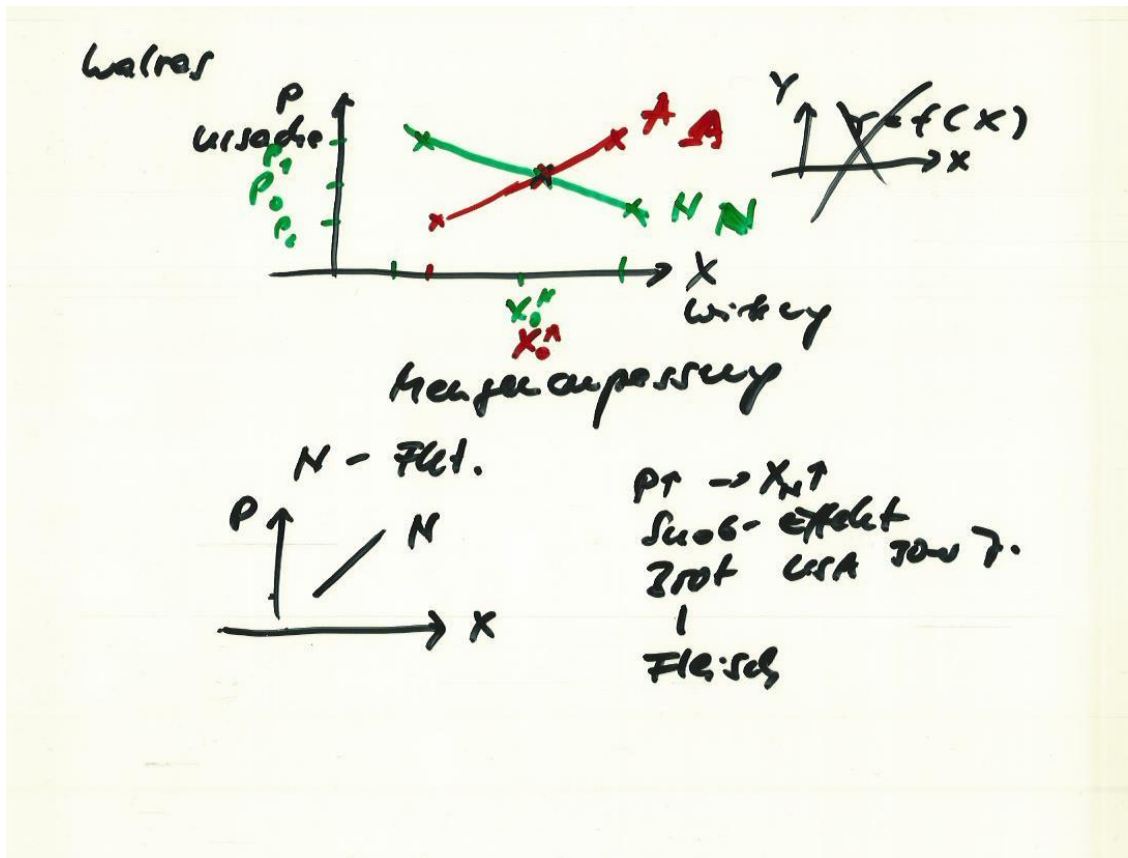 Walras
P
Ursache
P₁
P₀
P₂
A A
N N
X
Wirkung
X₀ᴺ
X₀ᴬ
Y
Y = f(X)
X
Mengenanpassung
N - Fkt.
P
N
X
P↑ → X_N↑
Snob-Effekt
Brot USA 30er J.
|
Fleisch